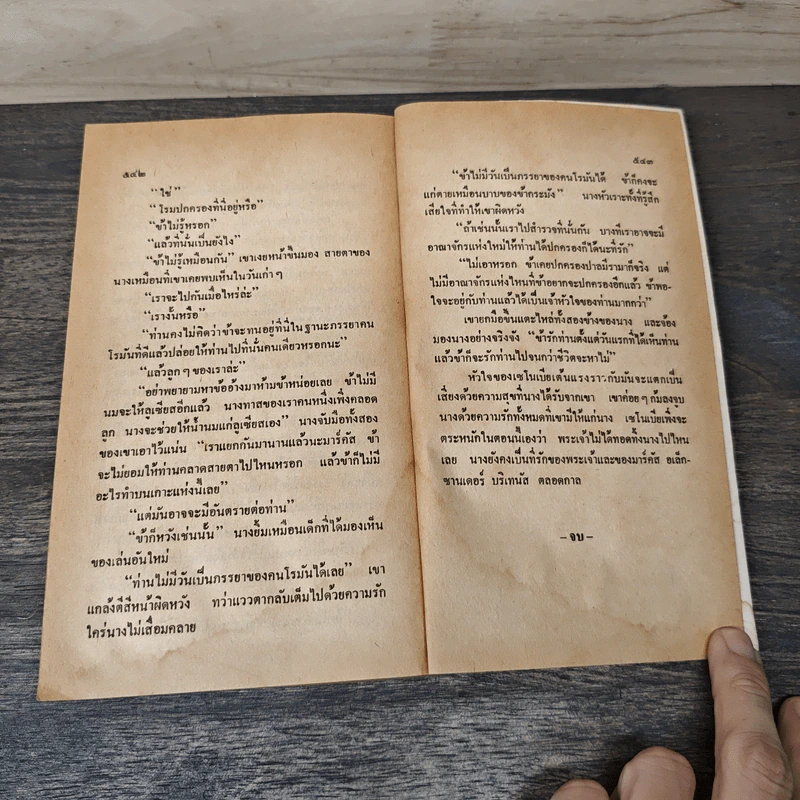 ๕๔๒
“ใช่”
“โรมปกครองที่นี่อยู่หรือ”
“ข้าไม่รู้หรอก”
“แล้วที่นั่นเป็นยังไง”
“ข้าไม่รู้เหมือนกัน” เขาเงยหน้าขึ้นมอง สายตาของ
นางเหมือนที่เขาเคยพบเห็นในวันเก่า ๆ
“เราจะไปกันเมื่อไหร่ล่ะ”
“เรางั้นหรือ”
“ท่านคงไม่คิดว่าข้าจะทนอยู่ที่นี่ในฐานะภรรยาคน
โรมันที่ดีแล้วปล่อยให้ท่านไปที่นั่นคนเดียวหรอกนะ”
“แล้วลูก ๆ ของเราล่ะ”
“อย่าพยายามหาข้ออ้างมาห้ามข้าหน่อยเลย ข้าไม่มี
นมจะให้ลูเซียสอีกแล้ว นางทาสของเราคนหนึ่งเพิ่งคลอด
ลูก นางจะช่วยให้น้ำนมแก่ลูเซียสเอง” นางจับมือทั้งสอง
ของเขาเอาไว้แน่น “เราแยกกันมานานแล้วนะมาร์คัส ข้า
จะไม่ยอมให้ท่านคลาดสายตาไปไหนหรอก แล้วข้าก็ไม่มี
อะไรทำบนเกาะแห่งนี้เลย”
“แต่มันอาจจะมีอันตรายต่อท่าน”
“ข้าก็หวังเช่นนั้น” นางยิ้มเหมือนเด็กที่ได้มองเห็น
ของเล่นอันใหม่
“ท่านไม่มีวันเป็นภรรยาของคนโรมันได้เลย” เขา
แกล้งตีสีหน้าผิดหวัง ทว่าแววตากลับเต็มไปด้วยความรัก
ใคร่นางไม่เสื่อมคลาย
๕๔๓
“ข้าไม่มีวันเป็นภรรยาของคนโรมันได้ ข้าก็คงจะ
แก่ตายเหมือนบาบของข้ากระมัง” นางหัวเราะทั้งที่รู้สึก
เสียใจที่ทำให้เขาผิดหวัง
“ถ้าเช่นนั้นเราไปสำรวจที่นั่นกัน บางทีเราอาจจะมี
อาณาจักรแห่งใหม่ให้ท่านได้ปกครองก็ได้นะที่รัก”
“ไม่เอาหรอก ข้าเคยปกครองปาลมีรามาก็จริง แต่
ไม่มีอาณาจักรแห่งไหนที่ข้าอยากจะปกครองอีกแล้ว ข้าพอ-
ใจจะอยู่กับท่านแล้วได้เป็นเจ้าหัวใจของท่านมากกว่า”
เขายกมือขึ้นแตะไหล่ทั้งสองข้างของนาง และจ้อง
มองนางอย่างจริงจัง “ข้ารักท่านตั้งแต่วันแรกที่ได้เห็นท่าน
แล้วข้าก็จะรักท่านไปจนกว่าชีวิตจะหาไม่”
หัวใจของเซโนเบียเต้นแรงราวกับมันจะแตกเป็น
เสี่ยงด้วยความสุขที่นางได้รับจากเขา เขาค่อย ๆ ก้มลงจูบ
นางด้วยความรักทั้งหมดที่เขามีให้แก่นาง เซโนเบียเพิ่งจะ
ตระหนักในตอนนี้เองว่า พระเจ้าไม่ได้ทอดทิ้งนางไปไหน
เลย นางยังคงเป็นที่รักของพระเจ้าและของมาร์คัส อเล็ก-
ซานเดอร์ บริเทนัส ตลอดกาล
– จบ –